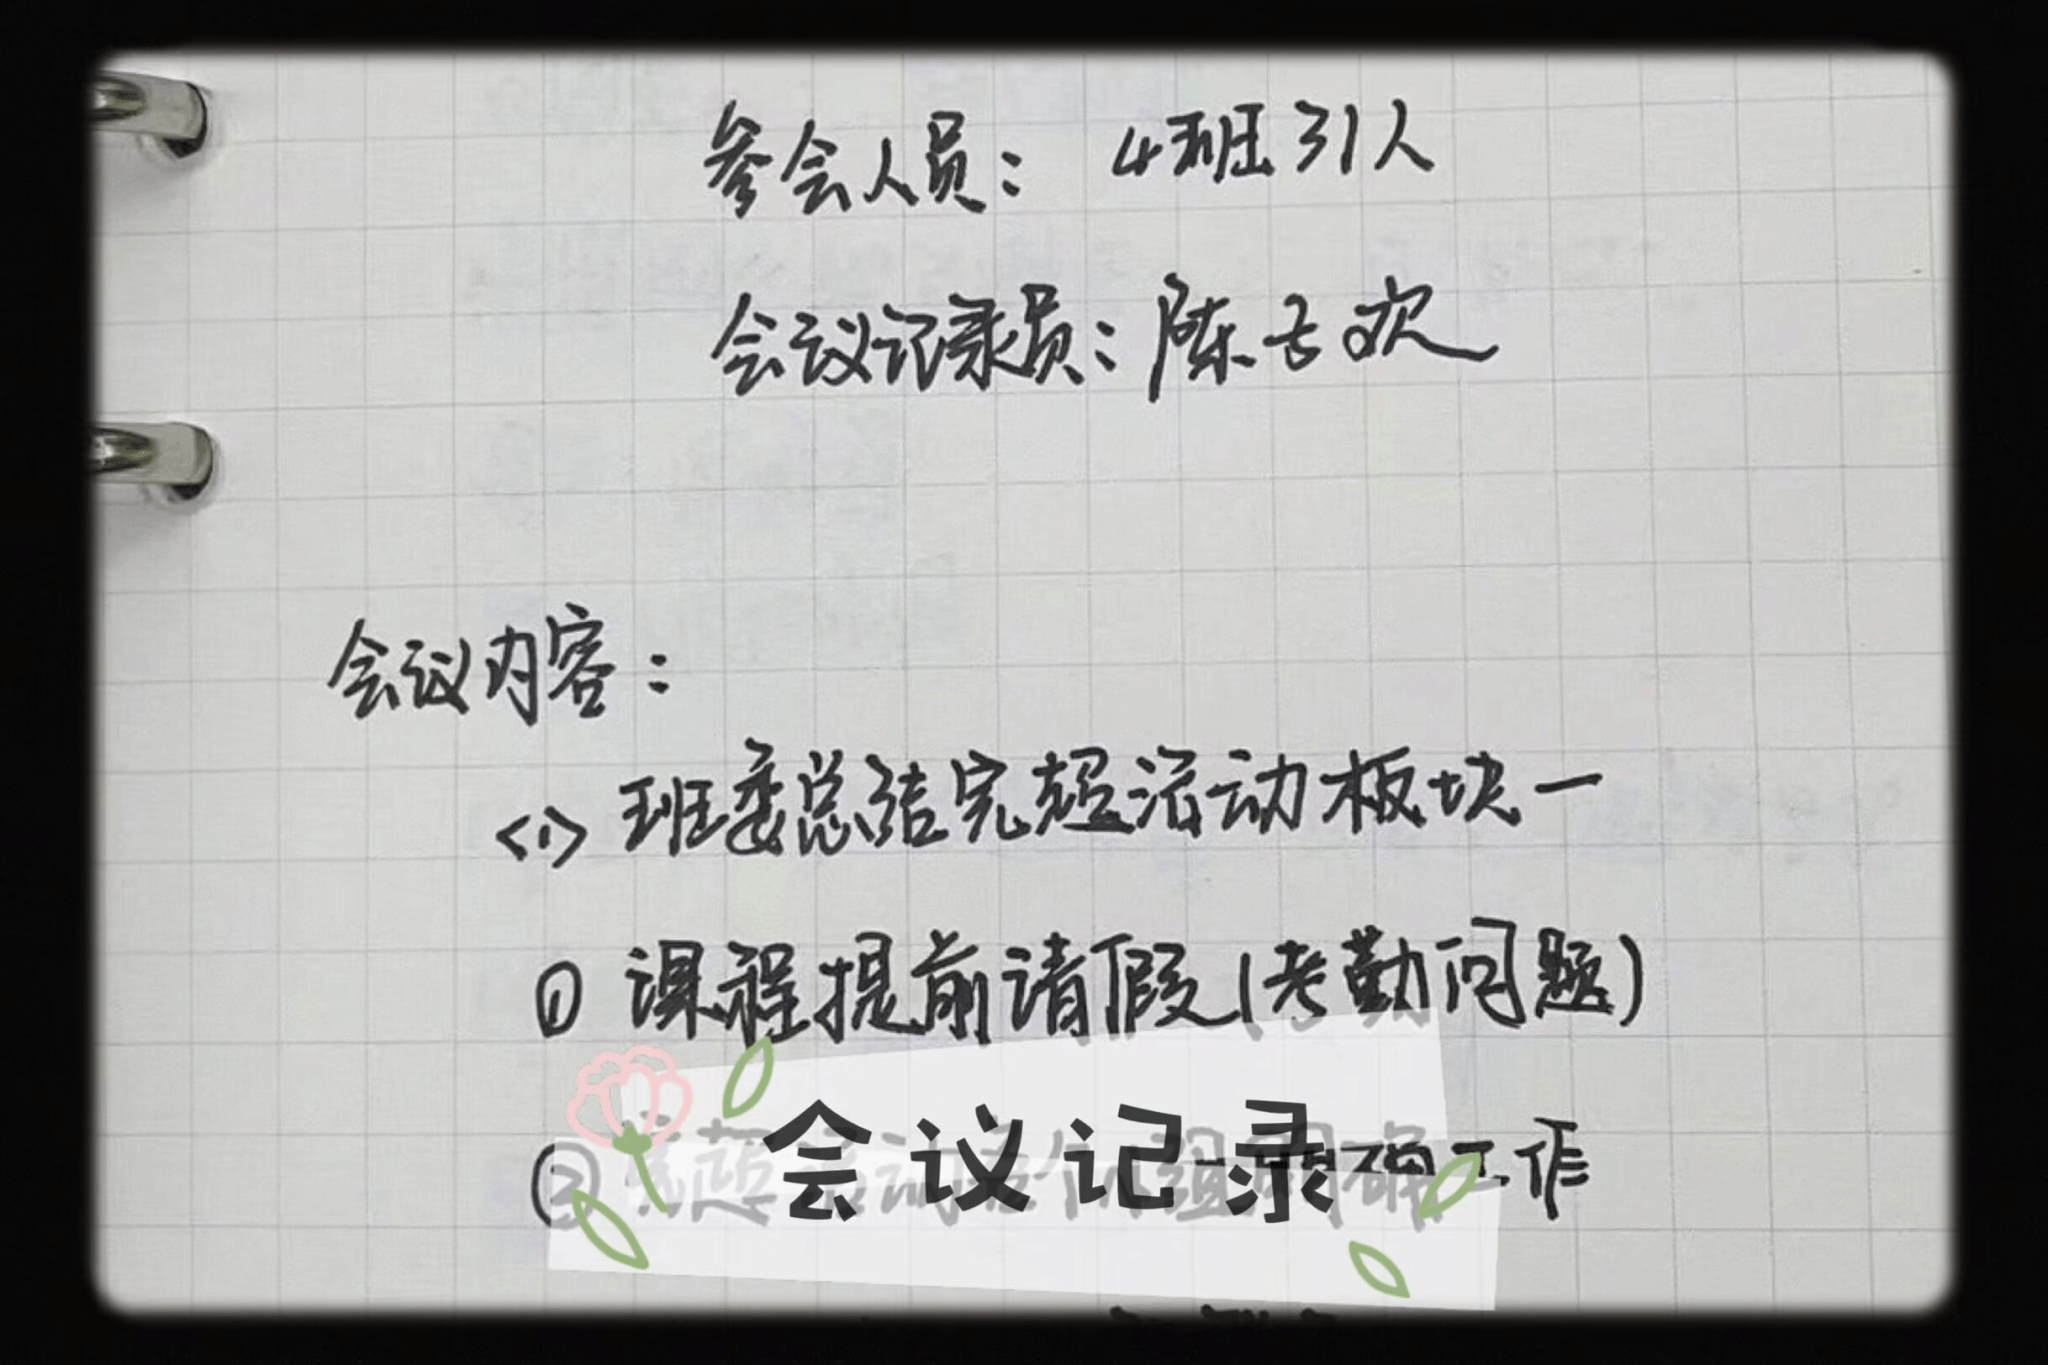 参会人员：4班31人
会议记录员：陈古欢
会议内容：
<1> 班委总结完超活动板块一
① 课程提前请假(考勤问题)
② 竞超活动各小组明确工作
会议记录